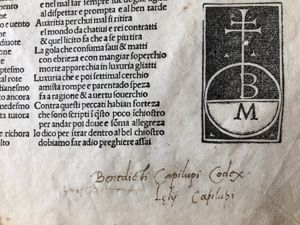 al dispettar e prompta e al ben tarde
Auaritia per chui mal si ritira
el mondo da chatiui e rei contratti
& quel licito fa che a se piu tira
La gola che consuma saui & matti
con ebrieza e con mangiar soperchio
morte apparechia in luxuria gliatti
Luxuria che e poi fetimal cerchio
amista rompe e parentado speza
fa a ragione & a uertu souerchio
Contra questi peccati habian forteza
che sono scripti i qsto poco schiostro
per andar poi doue e soma allegreza
Io dico per itrar dentro al bel chiostro
dobiamo far adio preghiere assai
B
M
Benedicti Capilupi Codex
Lelij Capilupi